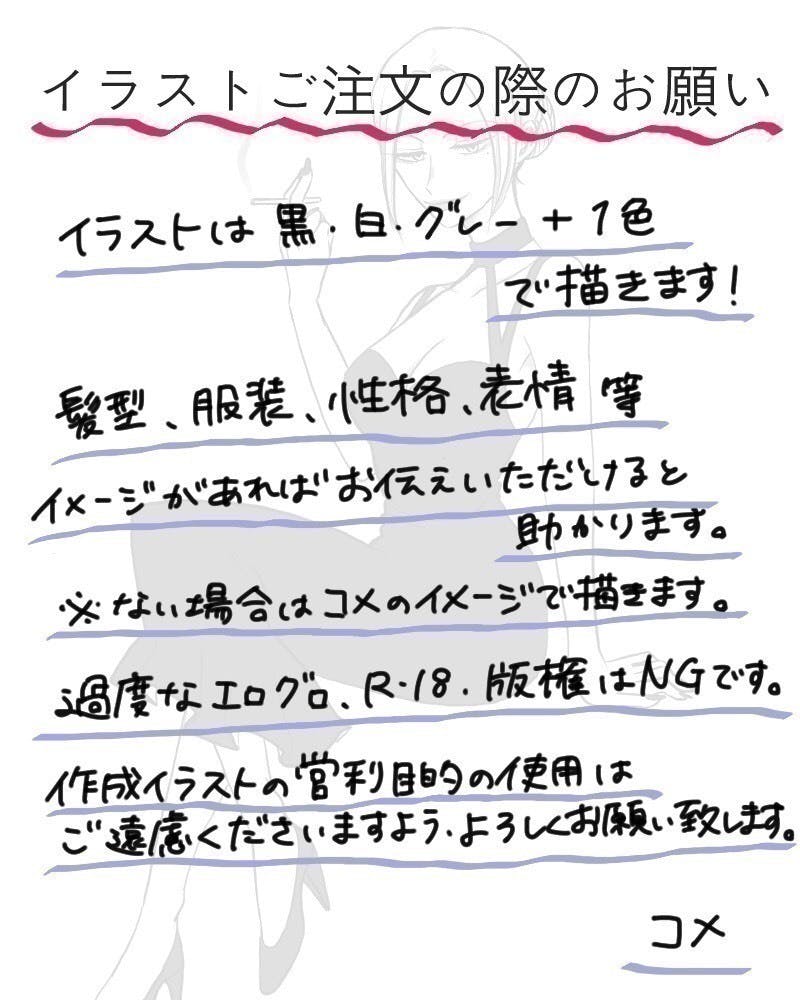 イラストご注文の際のお願い
イラストは 黒・白・グレー + 1色
で描きます!
髪型、服装、性格、表情 等
イメージがあればお伝えいただけると
助かります。
※ない場合はコメのイメージで描きます。
過度なエログロ、R-18、版権はNGです。
作成イラストの営利目的の使用は
ご遠慮くださいますよう、よろしくお願い致します。
コメ